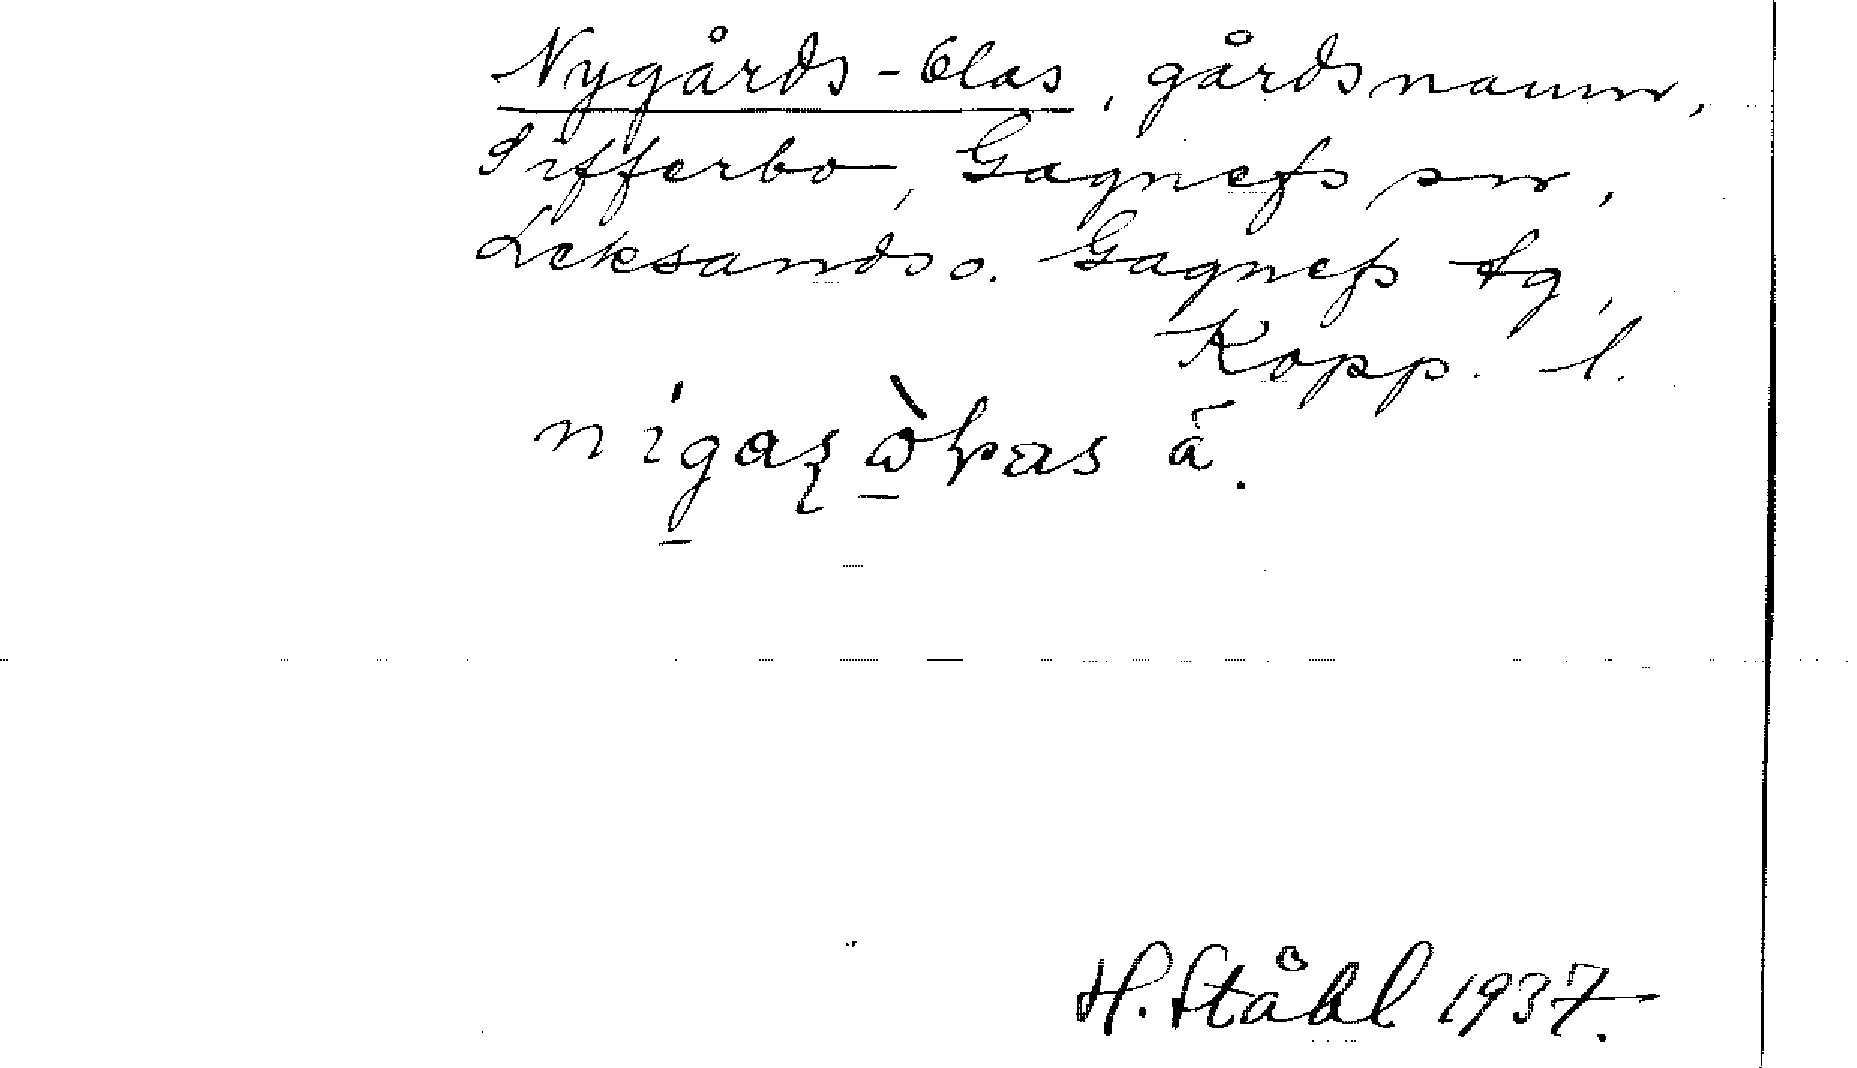 Nygårds-Olas, gårdsnamn,
Sifferbo, Gagnefs sn,
Leksands o. Gagnefs tg,
Kopp. l.
H. Ståhl 1937.